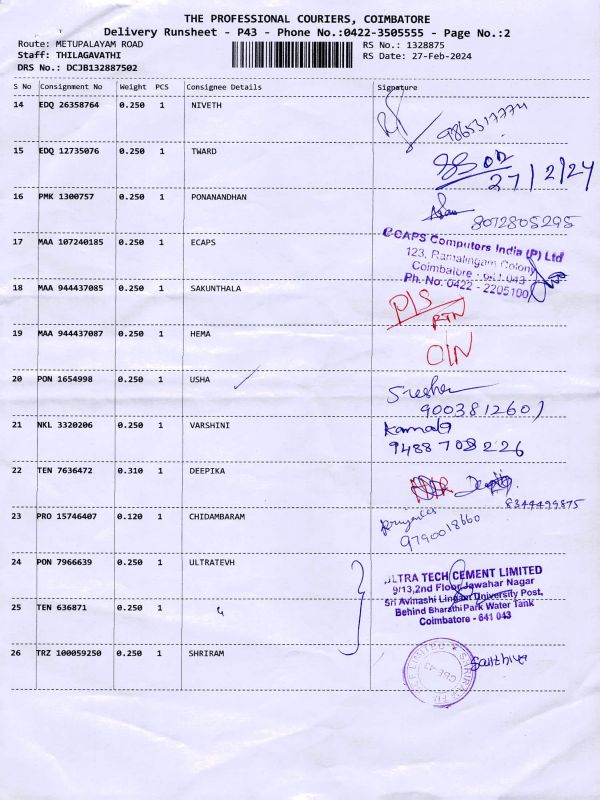 THE PROFESSIONAL COURIERS, COIMBATORE
Delivery Runsheet - P43 - Phone No.:0422-3505555 - Page No.:2
Route: METUPALAYAM ROAD RS No.: 1328875
Staff: THILAGAVATHI RS Date: 27-Feb-2024
DRS No.: DCJB132887502
S No Consignment No Weight PCS Consignee Details Signature
14 EDQ 26358764 0.250 1 NIVETH
15 EDQ 12735076 0.250 1 TWARD
27/2/24
16 PMK 1300757 0.250 1 PONANANDHAN
8072805295
17 MAA 107240185 0.250 1 ECAPS
eCAPS Computers India (P) Ltd
123, Ramalingam Colony
Coimbatore - 641 043
Ph. No. 0422 - 2205100
18 MAA 944437085 0.250 1 SAKUNTHALA
D/S
RTN
19 MAA 944437087 0.250 1 HEMA
O/N
20 PON 1654998 0.250 1 USHA
Sresher
9003812601
21 NKL 3320206 0.250 1 VARSHINI
Kamala
9488708226
22 TEN 7636472 0.310 1 DEEPIKA
8344499875
23 PRO 15746407 0.120 1 CHIDAMBARAM
9790018660
24 PON 7966639 0.250 1 ULTRATEVH
ULTRA TECH CEMENT LIMITED
9/13,2nd Floor,Jawahar Nagar
Sri Avinashi Lingam University Post,
Behind Bharathi Park Water Tank
Coimbatore - 641 043
25 TEN 636871 0.250 1
26 TRZ 100059250 0.250 1 SHRIRAM
CBE-43